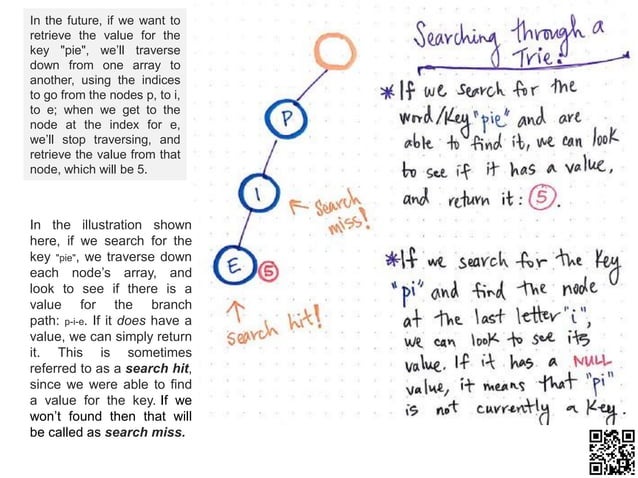 In the future, if we want to
retrieve the value for the
key "pie", we'll traverse
down from one array to
another, using the indices
to go from the nodes p, to i,
to e; when we get to the
node at the index for e,
we'll stop traversing, and
retrieve the value from that
node, which will be 5.
In the illustration shown
here, if we search for the
key "pie", we traverse down
each node's array, and
look to see if there is a
value for the branch
path: p-i-e. If it does have a
value, we can simply return
it. This is sometimes
referred to as a search hit,
since we were able to find
a value for the key. If we
won't found then that will
be called as search miss.
P
I
E
5
Search
miss!
search hit!
Searching through a
Trie:
*If we search for the
word/key "pie" and are
able to find it, we can look
to see if it has a value,
and return it: 5.
*If we search for the key
"pi" and find the node
at the last letter "i",
we can look to see its
value. If it has a NULL
value, it means that "pi"
is not currently a key.